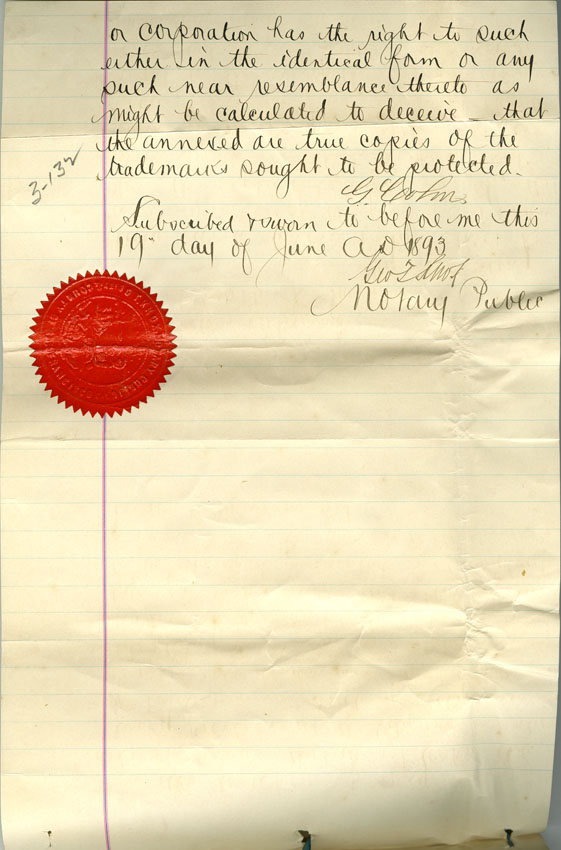 or corporation has the right to such
either in the identical form or any
such near resemblance thereto as
might be calculated to deceive – that
the annexed are true copies of the
trademarks sought to be protected.
3-132
G.
Subscribed & sworn to before me this
19" day of June A D 1893
Geo T
Notary Public